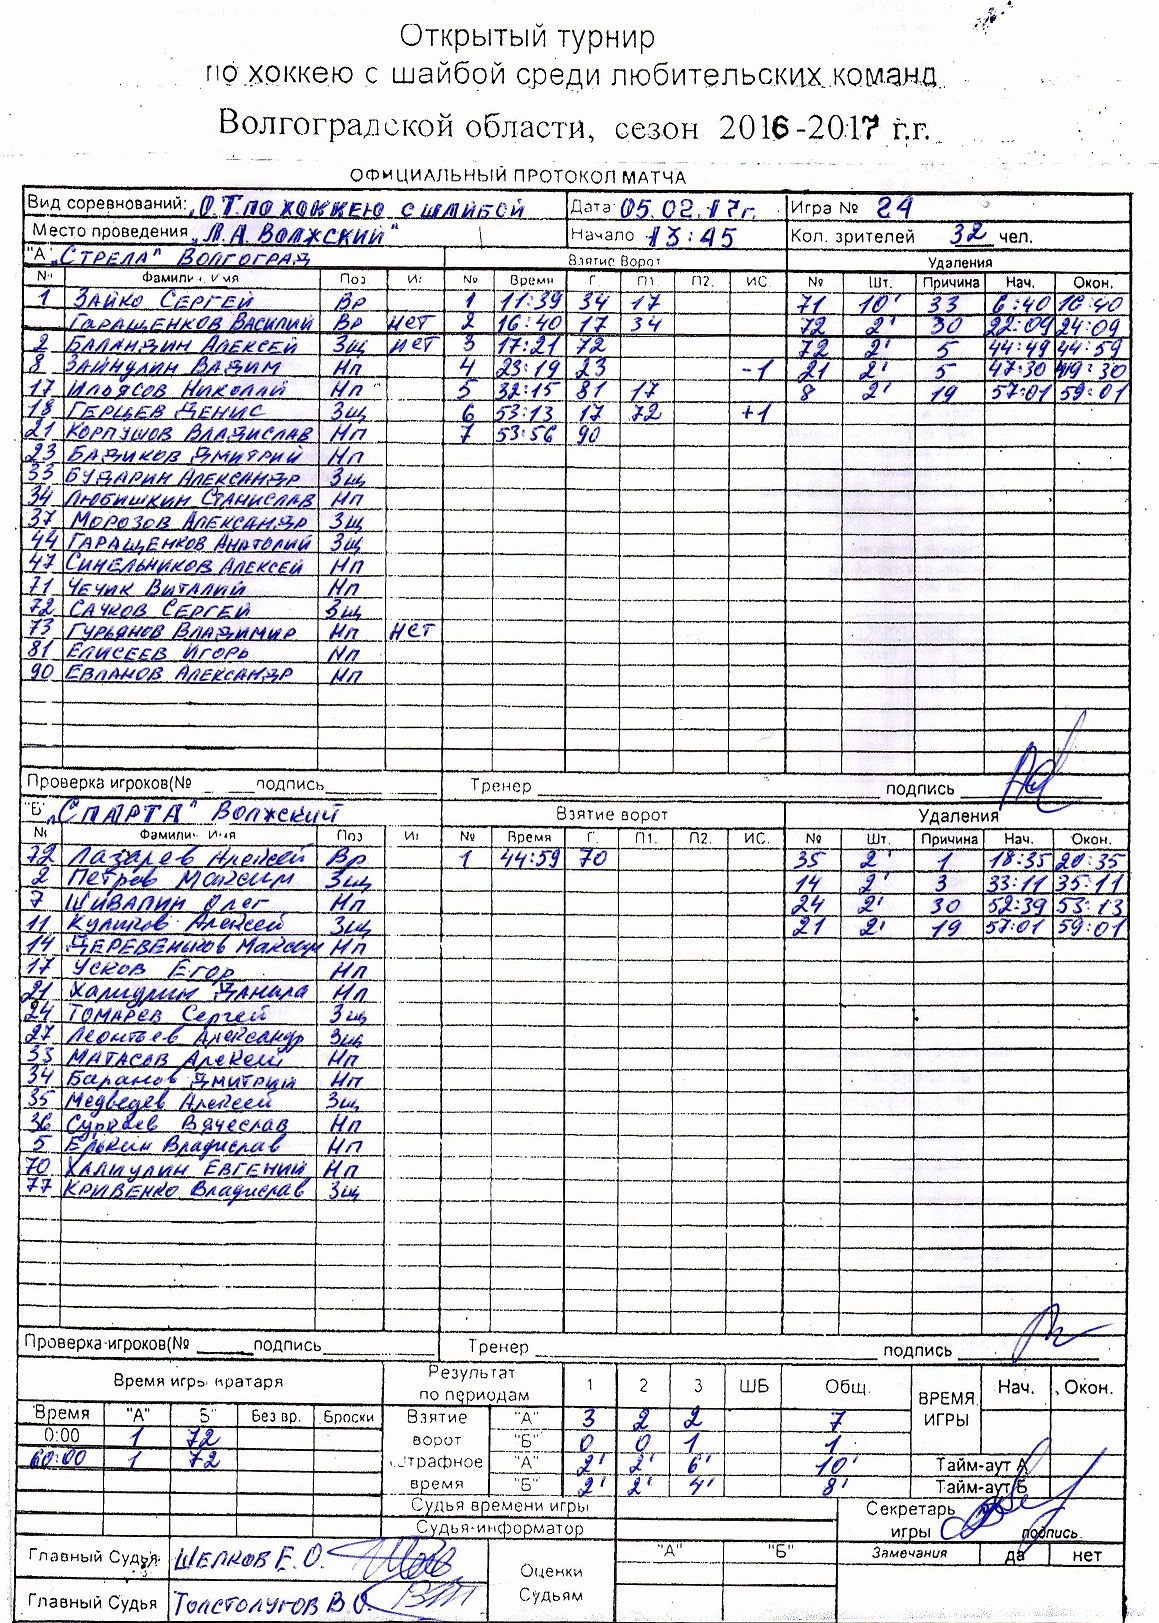 Открытый турнир
по хоккею с шайбой среди любительских команд
Волгоградской области, сезон 2016-2017 г.г.
ОФИЦИАЛЬНЫЙ ПРОТОКОЛ МАТЧА
Вид соревнований: О.Т. ПО ХОККЕЮ С ШАЙБОЙ Дата 05.02.17г. Игра № 24
Место проведения „Л.А. ВОЛЖСКИЙ" Начало 13:45 Кол. зрителей 32 чел.
"А „СТРЕЛА" ВОЛГОГРАД Взятие Ворот Удаления
№ Фамили Имя Поз И № Время Г П1 П2. ИС № Шт. Причина Нач. Окон.
1 ЗАЙКО СЕРГЕЙ Вр 1 11:39 34 17 71 10' 33 6:40 16:40
ГАРАЩЕНКОВ ВАСИЛИЙ Вр НЕТ 2 16:40 17 34 72 2' 30 22:09 24:09
2 БАЛАНДИН АЛЕКСЕЙ Зщ НЕТ 3 17:21 72 72 2' 5 44:49 44:59
8 ЗАЙНУЛИН ВАДИМ Нп 4 23:19 23 -1 21 2' 5 47:30 49:30
17 ИЛЬЯСОВ НИКОЛАЙ Нп 5 32:15 81 17 8 2' 19 57:01 59:01
18 ГЕРЦЕВ ДЕНИС Зщ 6 53:13 17 72 +1
21 КОРПУШОВ ВЛАДИСЛАВ Нп 7 53:56 90
23 БАДИКОВ ДМИТРИЙ Нп
33 БУДАРИН АЛЕКСАНДР Зщ
34 ЛЮБИШКИН СТАНИСЛАВ Нп
37 МОРОЗОВ АЛЕКСАНДР Зщ
44 ГАРАЩЕНКОВ АНАТОЛИЙ Зщ
47 СИНЕЛЬНИКОВ АЛЕКСЕЙ Нп
71 ЧЕЧИК ВИТАЛИЙ Нп
72 САЧКОВ СЕРГЕЙ Зщ
73 ГУРЬЯНОВ ВЛАДИМИР Нп НЕТ
81 ЕЛИСЕЕВ ИГОРЬ Нп
90 ЕВЛАНОВ АЛЕКСАНДР Нп
Проверка игроков(№ подпись Тренер подпись
"Б „СПАРТА" ВОЛЖСКИЙ Взятие ворот Удаления
№ Фамили Имя Поз И № Время Г П1. П2. ИС. № Шт. Причина Нач. Окон.
72 Лазарев Алексей Вр 1 44:59 70 35 2' 1 18:35 20:35
2 Петров Максим Зщ 14 2' 3 33:11 35:11
7 ШИВАПИН Олег Нп 24 2' 30 52:39 53:13
11 Куликов Алексей Зщ 21 2' 19 57:01 59:01
14 ДЕРЕВЕНЫКОВ Максим Нп
17 УСКОВ ЕГОР Нп
21 Халиулин Данила Нп
24 ТОМАРЕВ Сергей Зщ
27 Леонтьев Александр Зщ
33 МАТАСОВ Алексей Нп
34 Баранов Дмитрий Нп
35 Медведев Алексей Зщ
36 Суркаев Вячеслав Нп
5 Елькин Владислав Нп
70 ХАЛИУЛИН ЕВГЕНИЙ Нп
77 КРИВЕНКО Владислав Зщ
Проверка игроков(№ подпись Тренер подпись
Время игры вратаря Результат по периодам 1 2 3 ШБ Общ. ВРЕМЯ ИГРЫ Нач. Окон.
Время "А" Б" Без вр. Броски Взятие "А" 3 2 2 7
0:00 1 72 ворот "Б" 0 0 1 1
60:00 1 72 штрафное "А" 2' 2' 6' 10' Тайм-аут А
время "Б" 2' 2' 4' 8' Тайм-аут Б
Судья времени игры Секретарь
Судья-информатор игры подпись
Главный Судья ШЕЛКОВ Е.О. Оценки "А" "Б" Замечания да нет
Главный Судья ТОЛСТОЛУГОВ В.О. Судьям